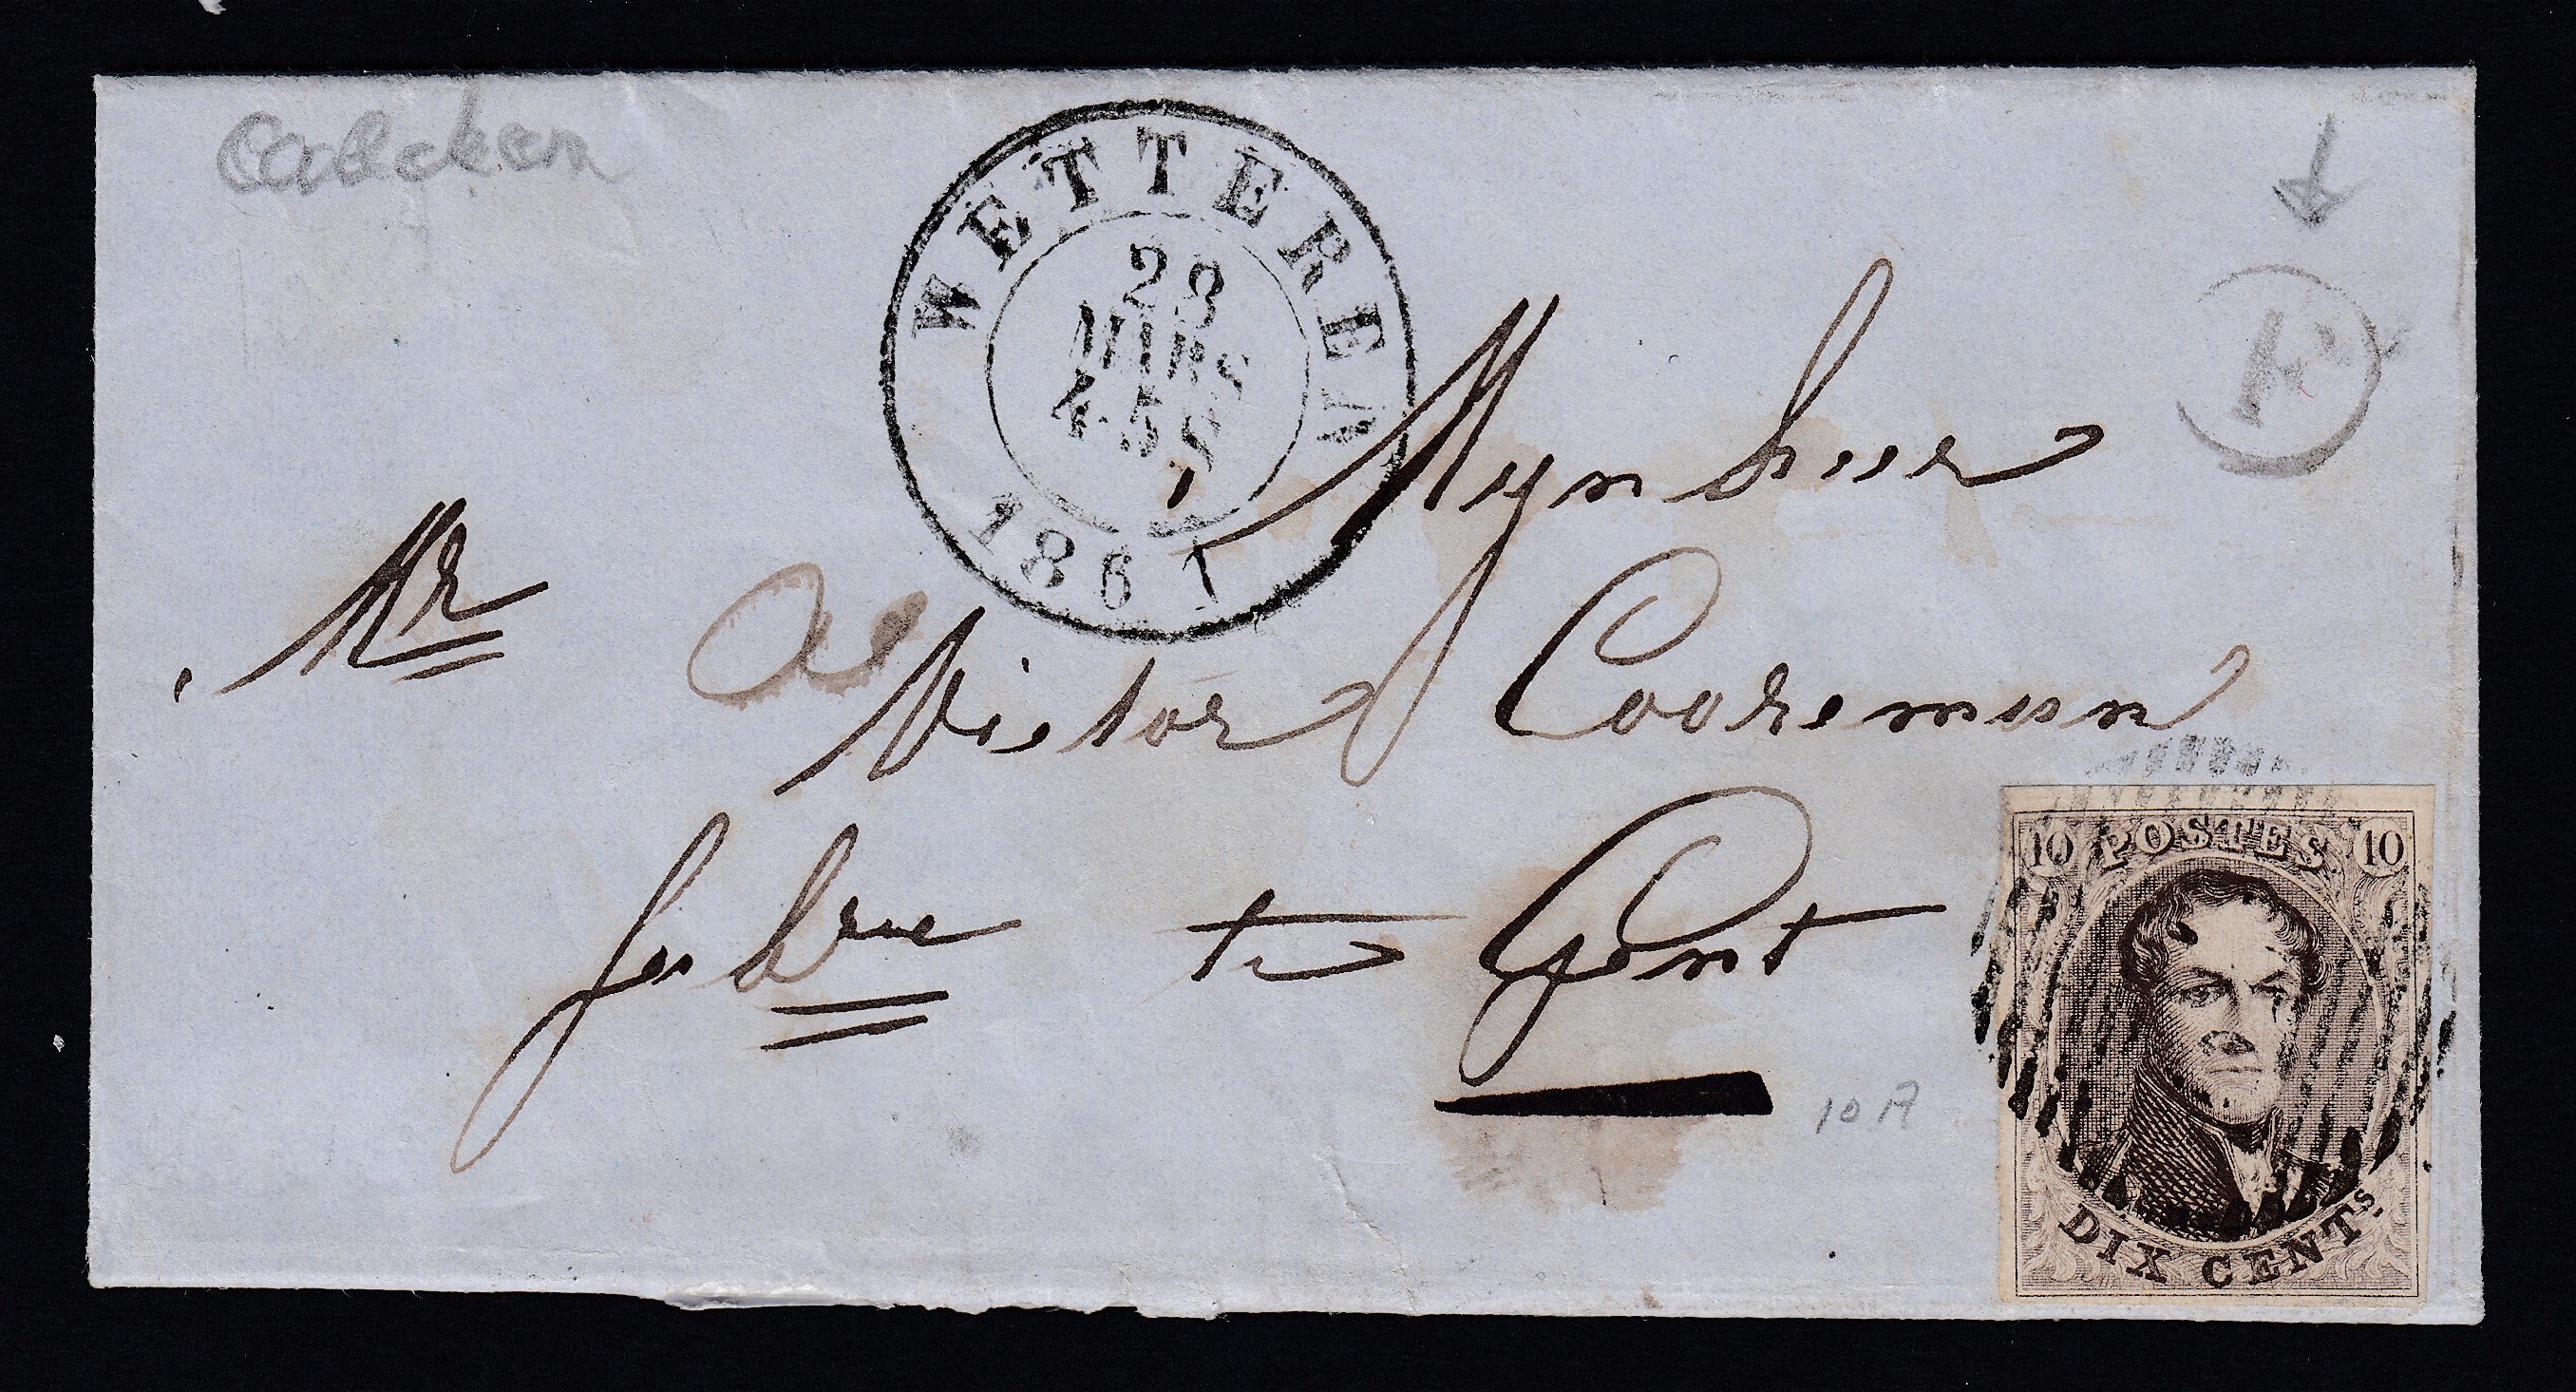 Calcken
WETTEREN
23
MARS
4-5 S
1861
Mynheer
Mr Victor Cooreman
fabrue te Gent
10 A
10 POSTES 10
DIX CENTS.